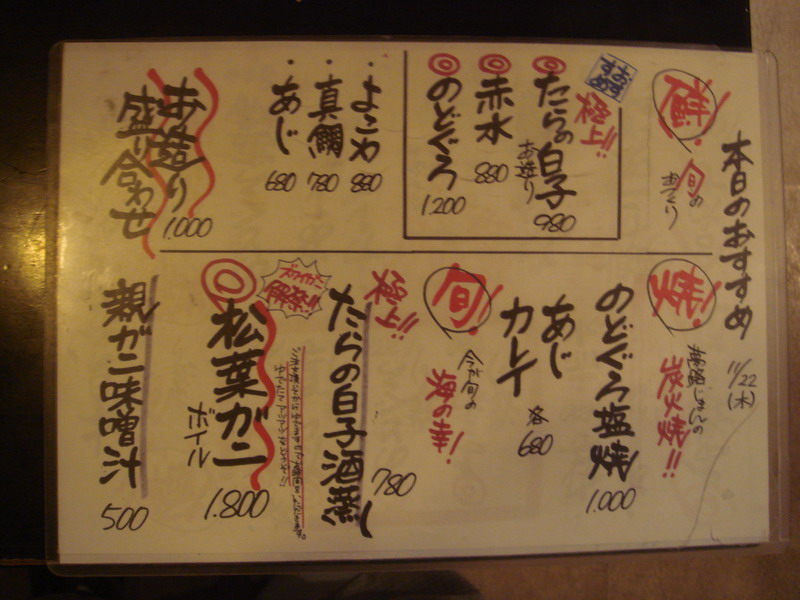 本日のおすすめ
11/22
(木)
旬の
おつくり
おすすめ
たらの白子
お造り
980
赤水
880
のどぐろ
1,200
・よこわ
880
・真鯛
780
・あじ
680
お造り
盛り合わせ
1,000
焼
炭火焼!!
のどぐろ塩焼
1,000
あじ
カレイ
各
680
旬
今が旬の
海の幸!
たらの白子酒蒸し
780
松葉ガニ
ボイル
1,800
親ガニ味噌汁
500